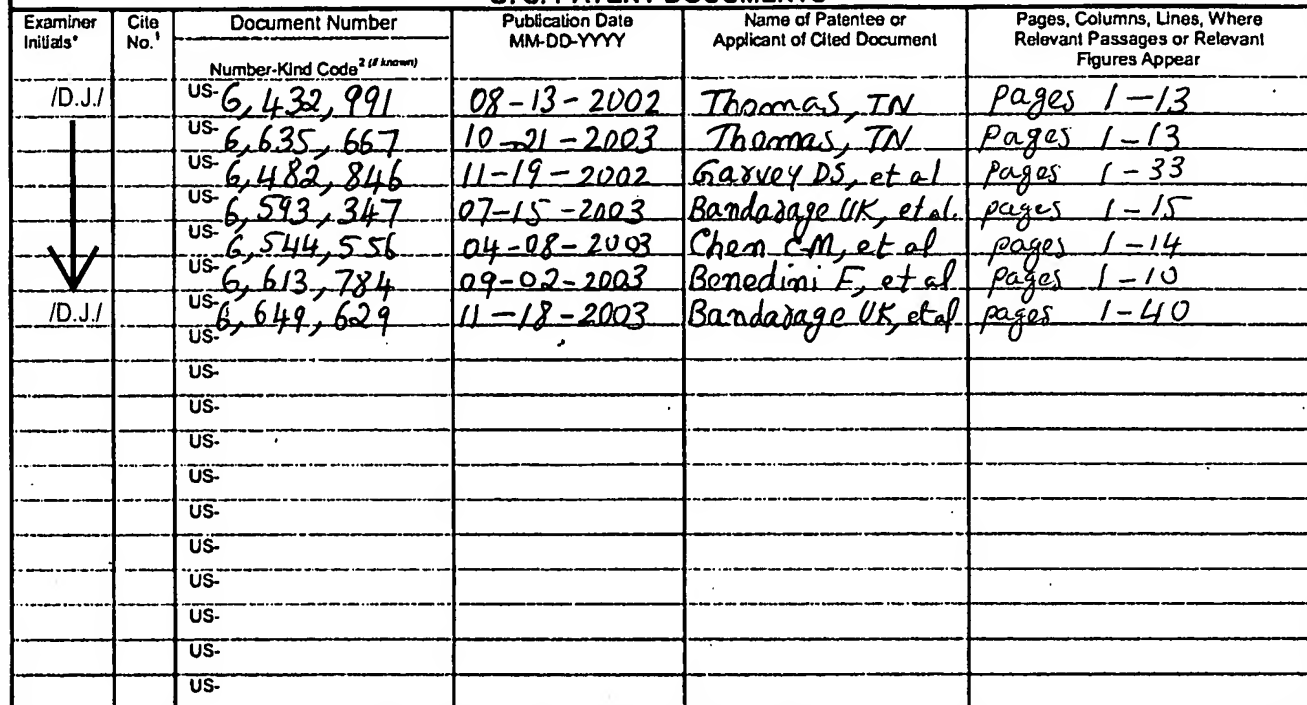 U. S. PATENT DOCUMENTS
Examiner Initials* Cite No.¹ Document Number Publication Date MM-DD-YYYY Name of Patentee or Applicant of Cited Document Pages, Columns, Lines, Where Relevant Passages or Relevant Figures Appear
Number-Kind Code² (if known)
/D.J./ US- 6,432,991 08-13-2002 Thomas, TN pages 1-13
US- 6,635,667 10-21-2003 Thomas, TN pages 1-13
US- 6,482,846 11-19-2002 Garvey DS, et al pages 1-33
US- 6,593,347 07-15-2003 Bandarage UK, et al. pages 1-15
US- 6,544,556 04-08-2003 Chen CM, et al pages 1-14
US- 6,613,784 09-02-2003 Benedini F, et al pages 1-10
/D.J./ US- 6,649,629 11-18-2003 Bandarage UK, et al pages 1-40
US-
US-
US-
US-
US-
US-
US-
US-
US-
US-
US-